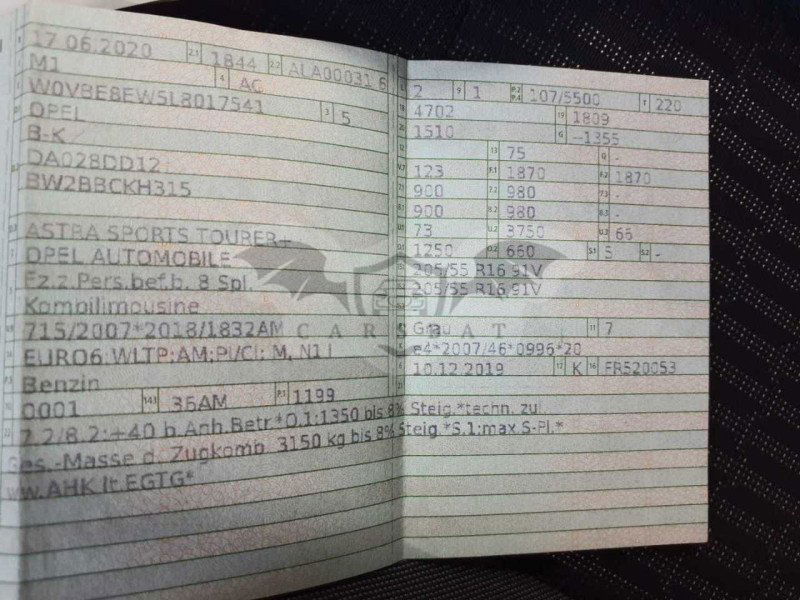 17.06.2020 2.1 1844 2.2 ALA00031 6
M1 4 AC
W0VBE8EW5L8017541 3 5
OPEL
B-K
DA028DD12
BW2BBCKH315
ASTRA SPORTS TOURER+
OPEL AUTOMOBILE
Fz.z.Pers.bef.b. 8 Spl.
Kombilimousine
715/2007*2018/1832AM
EURO6;WLTP;AM;PI/CI; M, N1 I
Benzin
0001 14.1 36AM P.1 1199
7.2/8.2:+40 b.Anh.Betr.*O.1:1350 bis 8% Steig.*techn. zul.
Ges.-Masse d. Zugkomb. 3150 kg bis 8% Steig.*S.1:max.5-Pl.*
ww.AHK lt.EGTG*
2 9 1 P.2 P.4 107/5500 T 220
4702 19 1809
1510 G -1355
13 75 Q -
123 F.1 1870 F.2 1870
900 7.2 980 7.3 -
900 8.2 980 8.3 -
73 U.2 3750 U.3 66
1250 O.2 660 S.1 5 S.2 -
205/55 R16 91V
205/55 R16 91V
Grau 11 7
e4*2007/46*0996*20
10.12.2019 17 K 16 FR520053